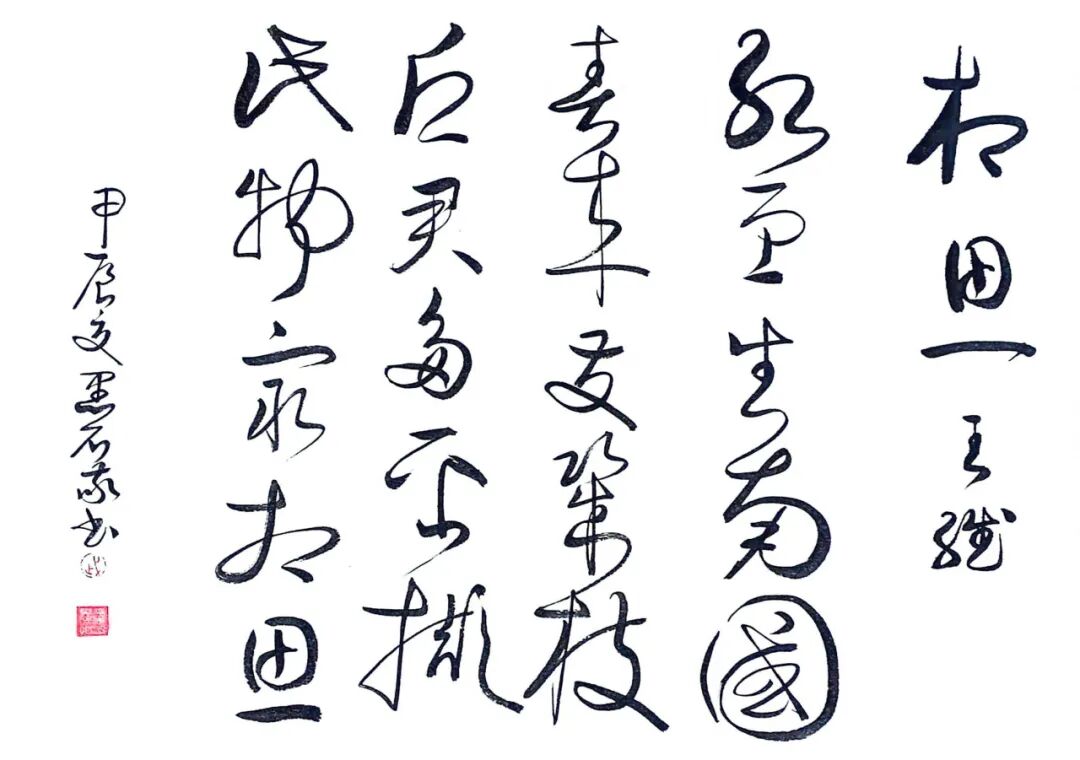 相思 王維
紅豆生南國
春來發幾枝
願君多采擷
此物最相思
甲辰夏墨石敬书